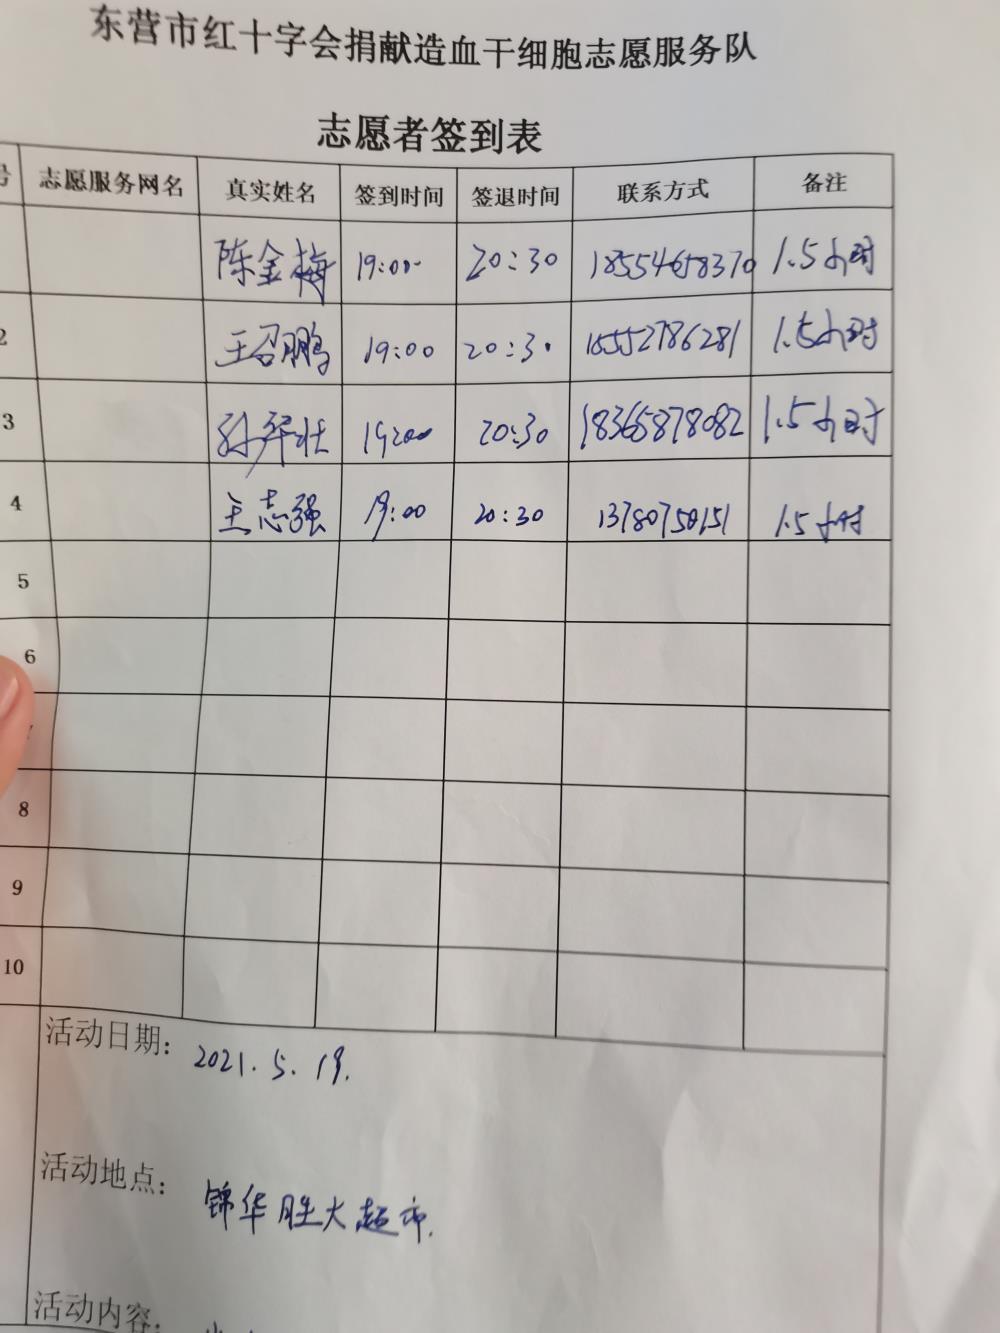 东营市红十字会捐献造血干细胞志愿服务队
志愿者签到表
号 志愿服务网名 真实姓名 签到时间 签退时间 联系方式 备注
陈金梅 19:00 20:30 18554658370 1.5小时
2 王召鹏 19:00 20:30 18552786281 1.5小时
3 孙华壮 19:00 20:30 18365878082 1.5小时
4 王志强 19:00 20:30 13780750151 1.5小时
5
6
8
9
10
活动日期: 2021.5.19.
活动地点: 锦华胜大超市.
活动内容: